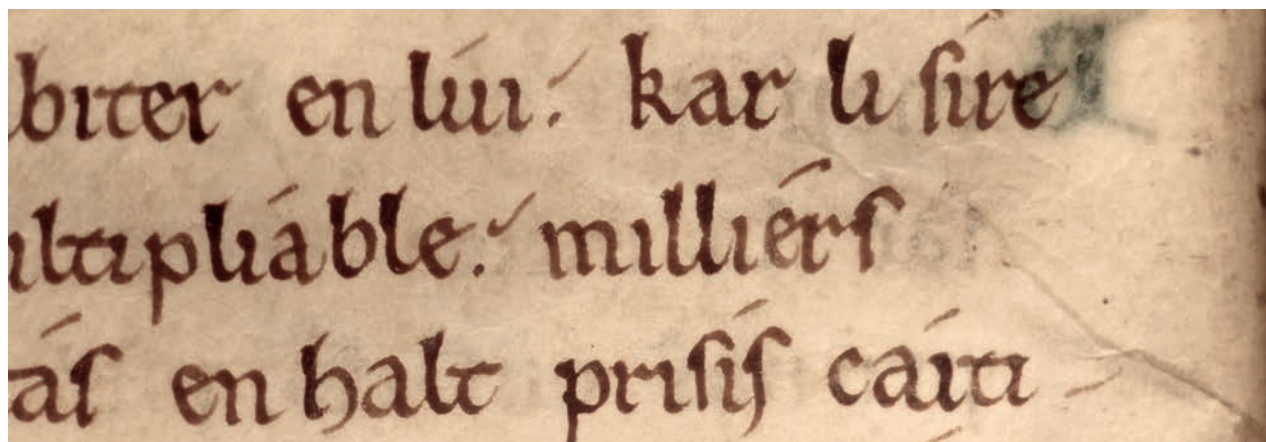 biter en lúi. kar li sire
ultipliáble. milliérs
tás en halt prisís cáiti